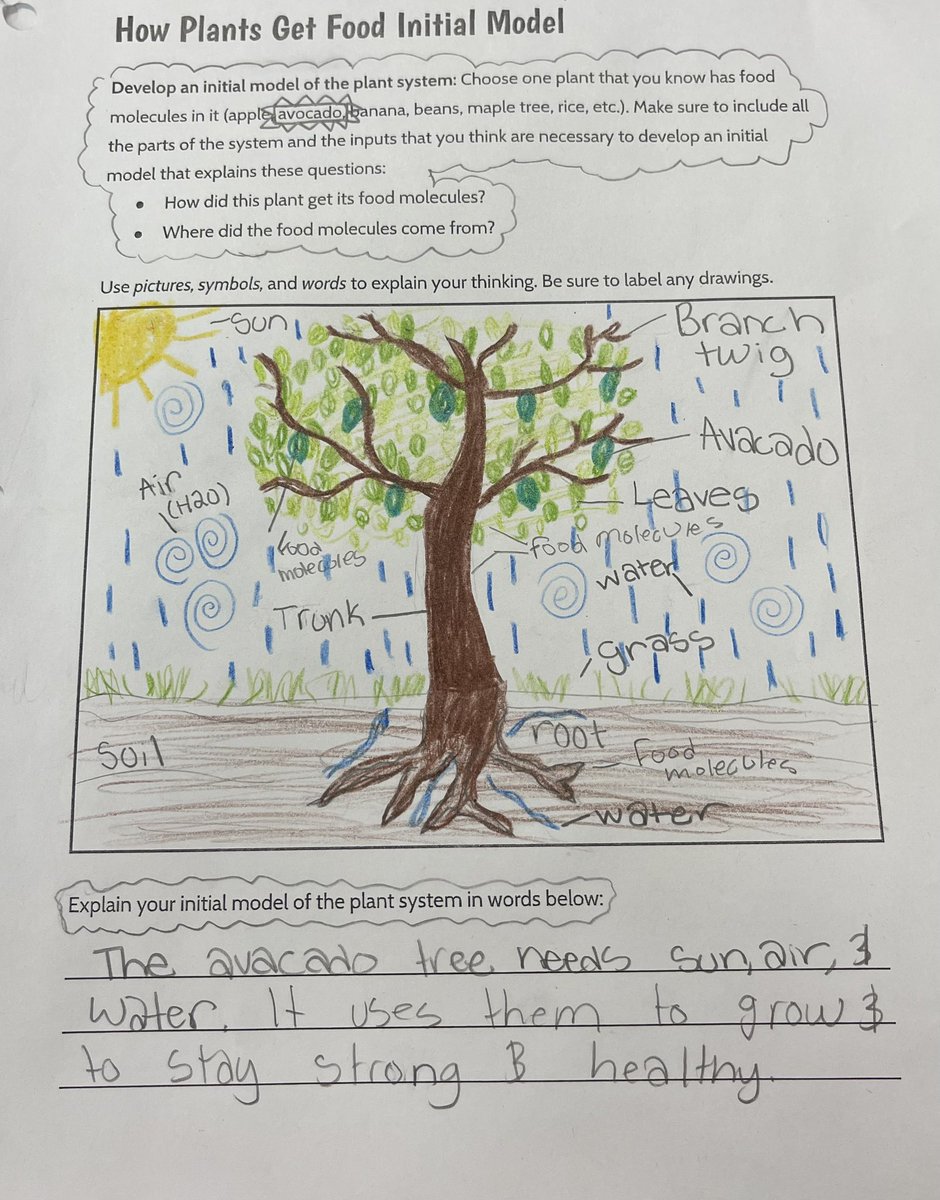 How Plants Get Food Initial Model
Develop an initial model of the plant system: Choose one plant that you know has food
molecules in it (apple, avocado, banana, beans, maple tree, rice, etc.). Make sure to include all
the parts of the system and the inputs that you think are necessary to develop an initial
model that explains these questions:
• How did this plant get its food molecules?
• Where did the food molecules come from?
Use pictures, symbols, and words to explain your thinking. Be sure to label any drawings.
Sun
Branch
twig
Avacado
Air
(H20)
Leaves
food
molecules
food molecules
water
Trunk
grass
Soil
root
Food
molecules
water
Explain your initial model of the plant system in words below:
The avacado tree needs sun, air, &
water. It uses them to grow &
to stay strong & healthy.